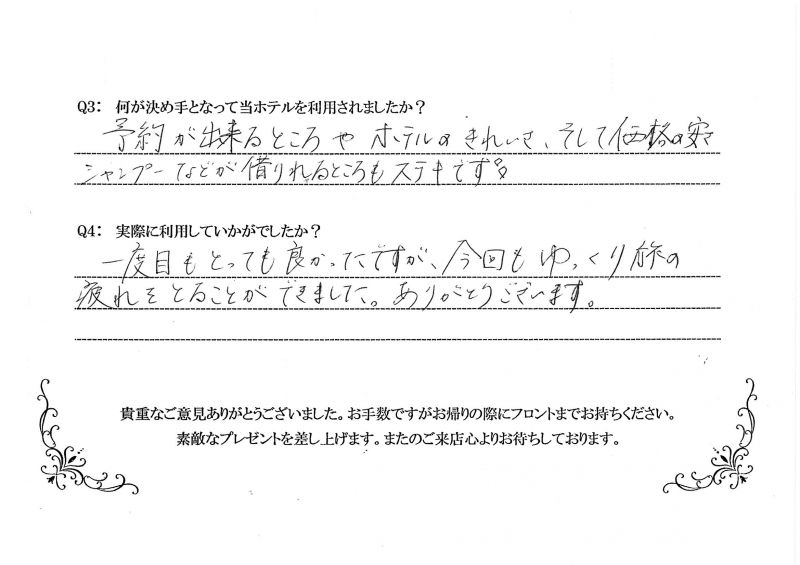 Q3: 何が決め手となって当ホテルを利用されましたか?
予約が出来るところや ホテルのきれいさ、そして価格の安さ
シャンプーなどが借りれるところもステキです
Q4: 実際に利用していかがでしたか?
一度目もとっても良かったですが、今回もゆっくり旅の
疲れをとることができました。ありがとうございます。
貴重なご意見ありがとうございました。お手数ですがお帰りの際にフロントまでお持ちください。
素敵なプレゼントを差し上げます。またのご来店心よりお待ちしております。